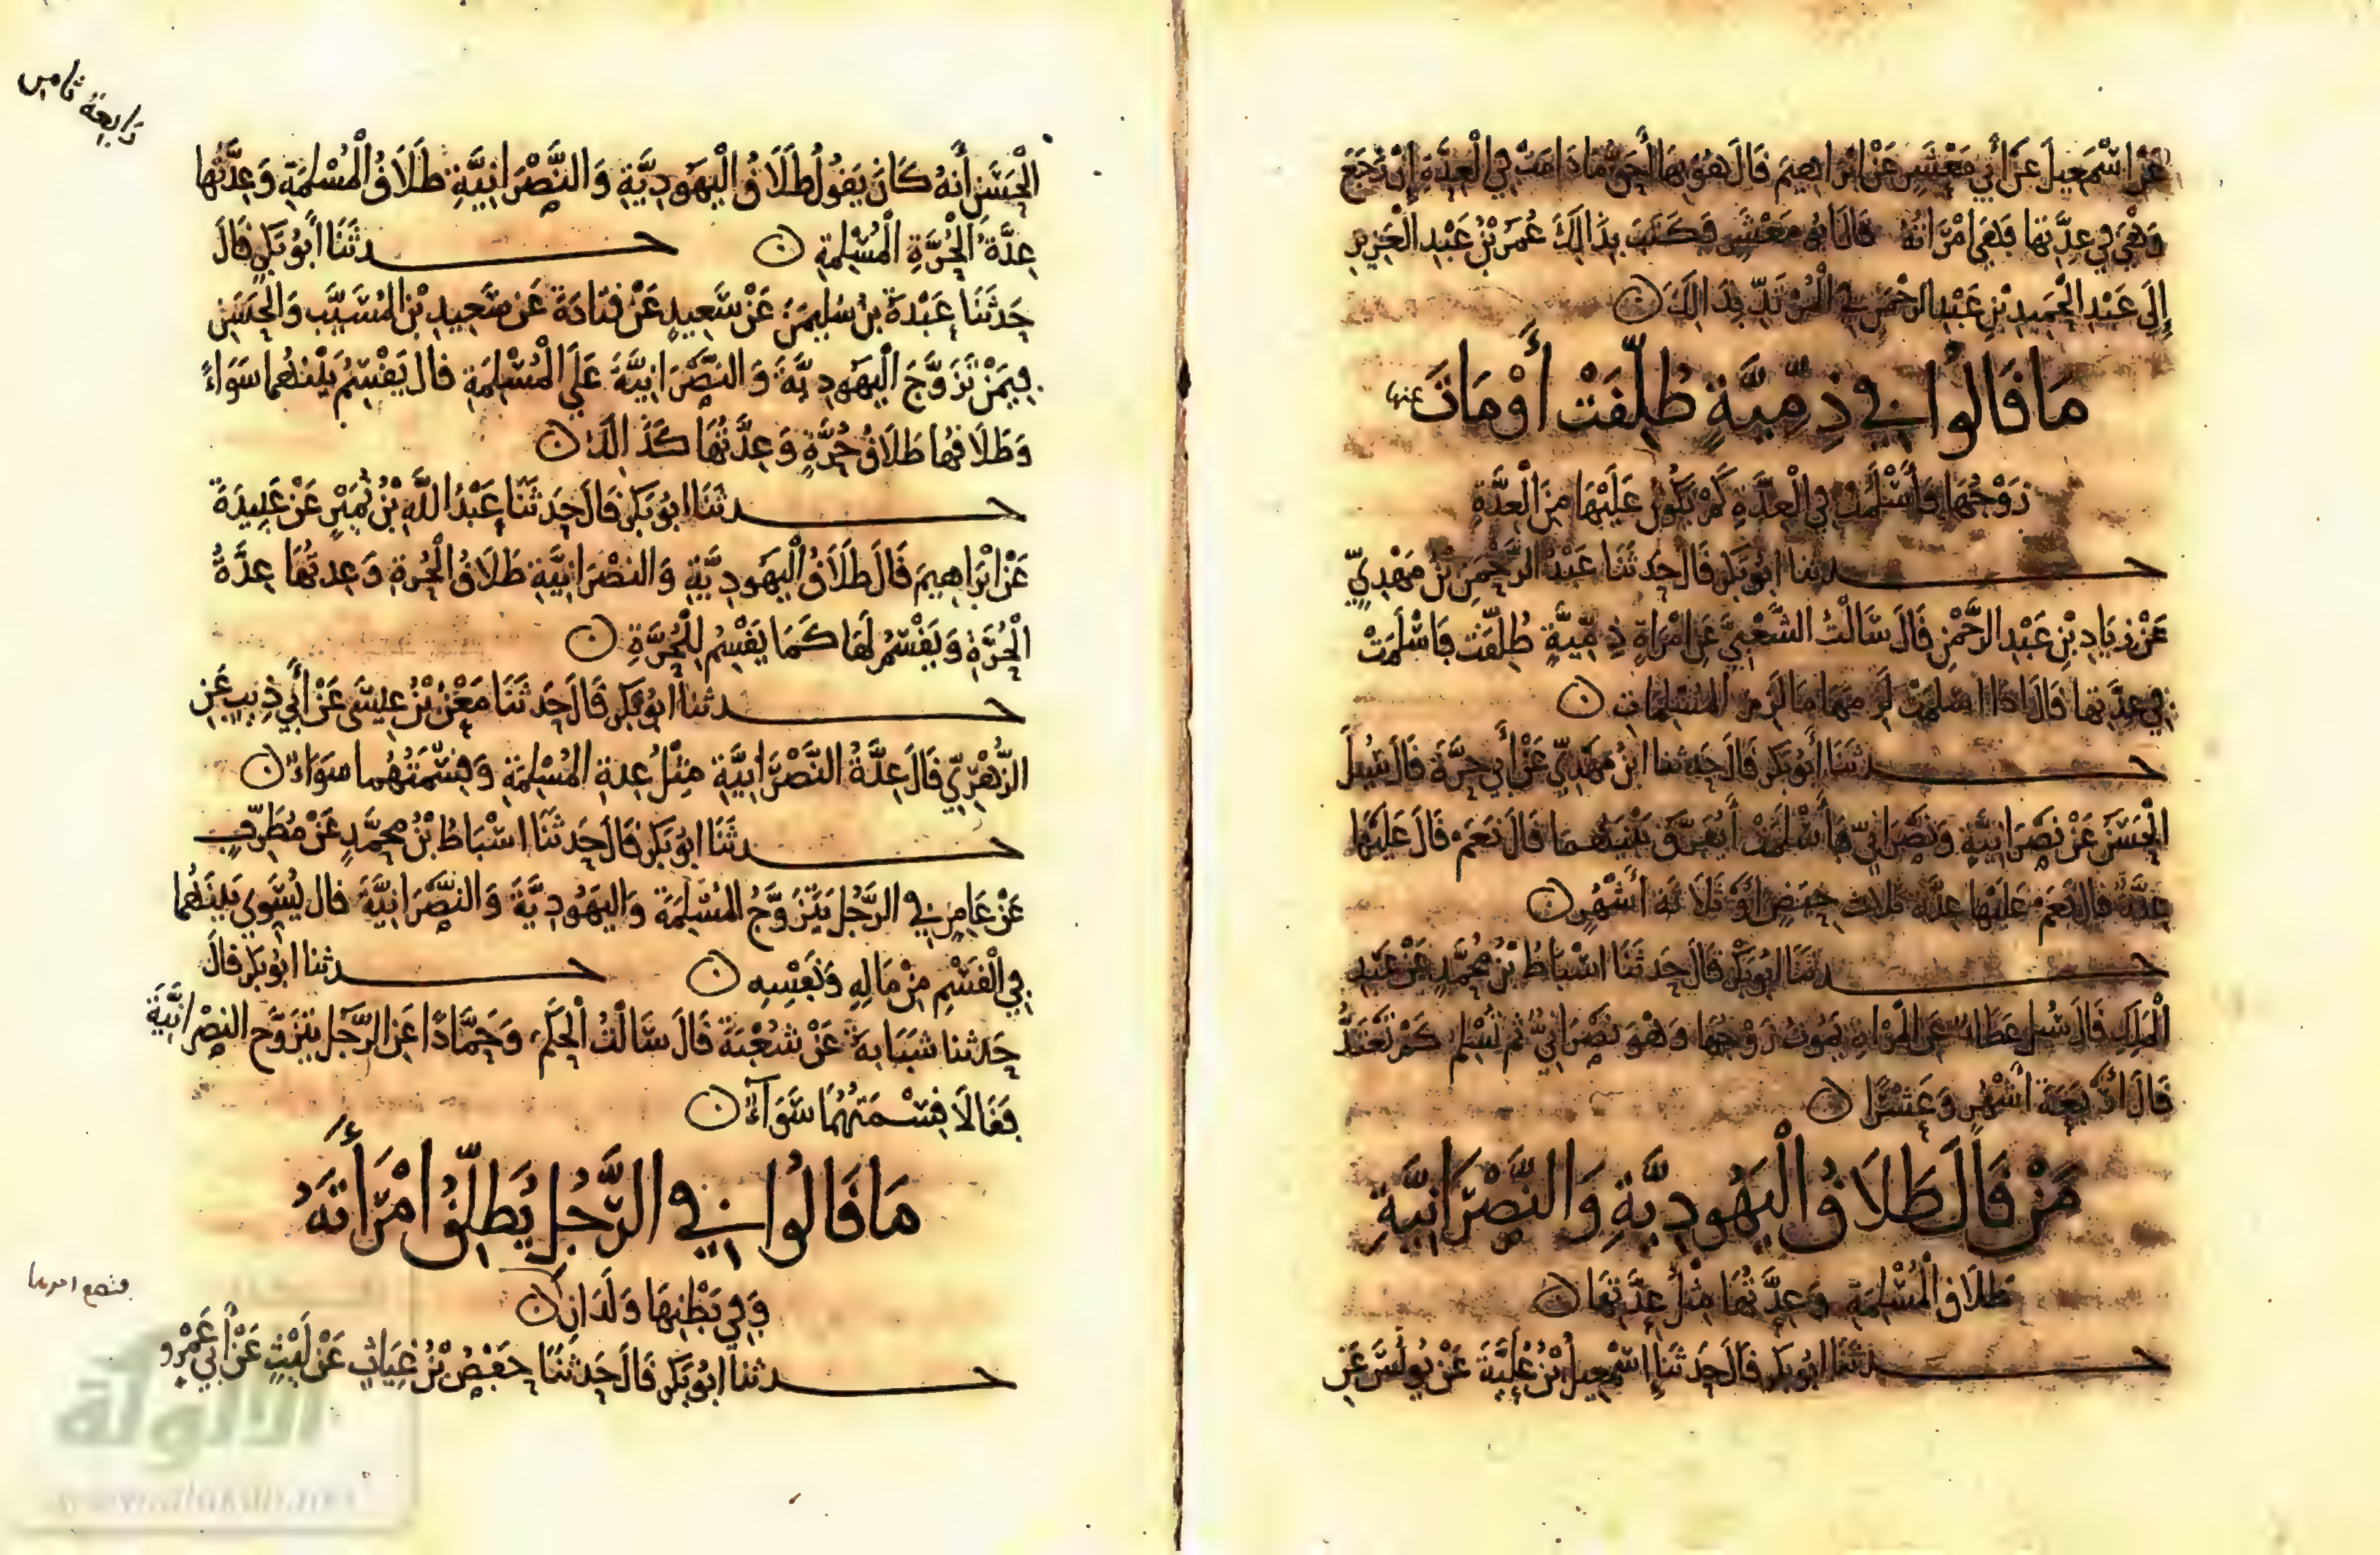 عَنْ اسْمَعِيلَ عَنْ أَبِي مَعْشَرٍ عَنْ ابْرَاهِيمَ قَالَ هُوَ بِهَا أَحَقُّ مَا دَامَتْ فِي الْعِدَّةِ إِنْ رَجَعَ
وَهْيَ فِي عِدَّتِهَا فَهْيَ امْرَأَتُهُ قَالَ أبُو مَعْشَرٍ وَكَتَبَ بِذَالِكَ عُمَرُ بْنُ عَبْدِ الْعَزِيزِ
إِلَى عَبْدِ الْحَمِيدِ بْنِ عَبْدِ الرحْمَنِ فِي الْمُرْتَدِّ بِذَالِكَ
مَا قَالُوا فِي ذِمِّيَّةٍ طُلِّقَتْ أَوْ مَاتَ عنها
زَوْجُهَا وَأَسْلَمَتْ فِي الْعِدَّةِ كَمْ يَكُونُ عَلَيْهَا مِنَ الْعِدَّةِ
حدثنا ابُو بَكر قَالَ حَدثَنَا عَبْدُ الرَّحْمَنِ بْنُ مَهْدِيٍّ
عَنْ زِيَادِ بْنِ عَبْدِ الرَّحْمَنِ قَالَ سَالْتُ الشَّعْبِيَّ عَنِ امْرَاةٍ ذِمِّيَّةٍ طُلِّقَت فَاسْلَمَتْ
فِي عِدَّتِهَا قَالَ اذَا اسْلَمَتْ لَزِمَهَا مَا لَزِمَ الْمُسْلِمَاتِ
حدثَنَا أَبُو بَكر قَالَ حَدثنا ابْنُ مَهْدِيٍّ عَنْ أَبِي حَرَّةَ قَالَ سُئِلَ
الْحَسَنُ عَنْ نَصْرَانِيَّةٍ وَنَصْرَانِيّ فَأَسْلَمَتْ أَيُفَرَّق بَيْنَهُمَا قَالَ نَعَمْ قَالَ عَلَيْهَا
عِدَّةٌ قَالَ نَعَمْ عَلَيْهَا عِدَّةُ ثَلَاث حِيَضٍ أَوْ ثَلَاثَة أَشْهُرٍ
حدثَنَا ابُو بَكْر قَالَ حَدثَنَا اسْبَاطُ بْنُ مُحَمَّدٍ عَنْ عَبْدِ
الْمَلِكِ قَالَ سُئِلَ عَطَاءٌ عَنِ الْمَرْأَةِ يَمُوتُ زَوْجُهَا وَهْوَ نَصْرَانِيٌّ ثُم تُسْلِم كَمْ تَعْتَدُّ
قَالَ ارْبَعَة أَشْهُرٍ وَعَشْرًا
مَنْ قَالَ طَلَاقُ الْيَهُودِيَّةِ وَالنَّصْرَانِيَّةِ
طَلَاق الْمُسْلِمَةِ وَعِدَّتُهَا مِثْلُ عِدَّتِهَا
حدثنَا ابُو بَكر قَالَ حَدثَنَا إِسْمَعِيلُ بْنُ عُلَيَّةَ عَنْ يُونُسَ عَنِ
رابعة ثامن
الْحَسَنِ أَنَّهُ كَانَ يَقُولُ طَلَاقُ الْيَهُودِيَّةِ وَالنَّصْرَانِيَّةِ طَلَاقُ الْمُسْلِمَةِ وَعِدَّتُهَا
عِدَّةُ الْحُرَّةِ الْمُسْلِمَةِ حدثَنَا أَبُو بَكرٍ قَالَ
حَدثَنَا عَبْدَةُ بْنُ سُلَيمَنَ عَنْ سَعِيدٍ عَنْ قَتَادَةَ عَن سَعِيدِ بْنِ الْمُسَيَّب وَالْحَسَنِ
فِيمَنْ تَزَوَّجَ الْيَهُودِيَّةَ وَالنَّصْرَانِيَّةَ عَلَى الْمُسْلِمَةِ قال يَقْسِمُ بَيْنَهُما سَوَاءً
وَطَلَاقُهَا طَلَاقُ حُرَّةٍ وَعِدَّتُهَا كَذَالِكَ
حدثَنَا ابُو بَكر قَالَ حَدثَنَا عَبْدُ اللَّهِ بْنُ نُمَيْرٍ عَنْ عُبِيدَةَ
عَنْ ابْرَاهِيمَ قَالَ طَلَاقُ الْيَهُودِيَّةِ وَالنصْرَانِيَّةِ طَلَاقُ الْحُرةِ وَعِدتُهَا عِدَّةُ
الْحُرَّةِ وَيَقْسِمُ لَهَا كَمَا يَقْسِمُ لِلْحُرَّةِ
حدثنا أبُو بَكر قَالَ حَدثَنَا مَعْنُ بْنُ عِيسَى عَنْ أَبِي ذِيب عَنِ
الزُّهْرِيِّ قَالَ عِدَّةُ النَّصْرَانِيَّةِ مِثْلُ عِدةِ الْمُسْلِمَةِ وَقِسْمَتُهُما سَوَاءٌ
حدثَنَا ابُو بَكر قَالَ حَدثَنَا اسْبَاطُ بْنُ مُحمَّدٍ عَنْ مُطَرِّفٍ
عَنْ عَامِرٍ فِي الرَّجُلِ يَتَزَوَّجُ الْمُسْلِمَةَ وَالْيَهُودِيَّةَ وَالنَّصْرَانِيَّةَ قال يُسَوِّي بَيْنَهُما
فِي الْقَسْمِ مِنْ مَالِهِ وَنَفْسِهِ حدثنا ابُو بَكر قَالَ
حَدثنا شَبَابَةُ عَنْ شُعْبَةَ قَالَ سَالْتُ الْحَكَمَ وَحَمَّادًا عَنِ الرَّجُلِ يَتَزَوَّج النصْرَانِيَّةَ
فَقَالَا قِسْمَتُهُمَا سَوَآءٌ
مَا قَالُوا فِي الرَّجُلِ يُطَلِّقُ امْرَأَتَهُ
وَفِي بَطْنِهَا وَلَدَانِ
فتضع احدهما
حدثنا ابُو بَكر قَالَ حَدثَنَا حَفْصُ بْنُ غِيَاثٍ عَنْ لَيْثٍ عَنْ أَبِي عَمْرٍو
الألوكة
www.alukah.net